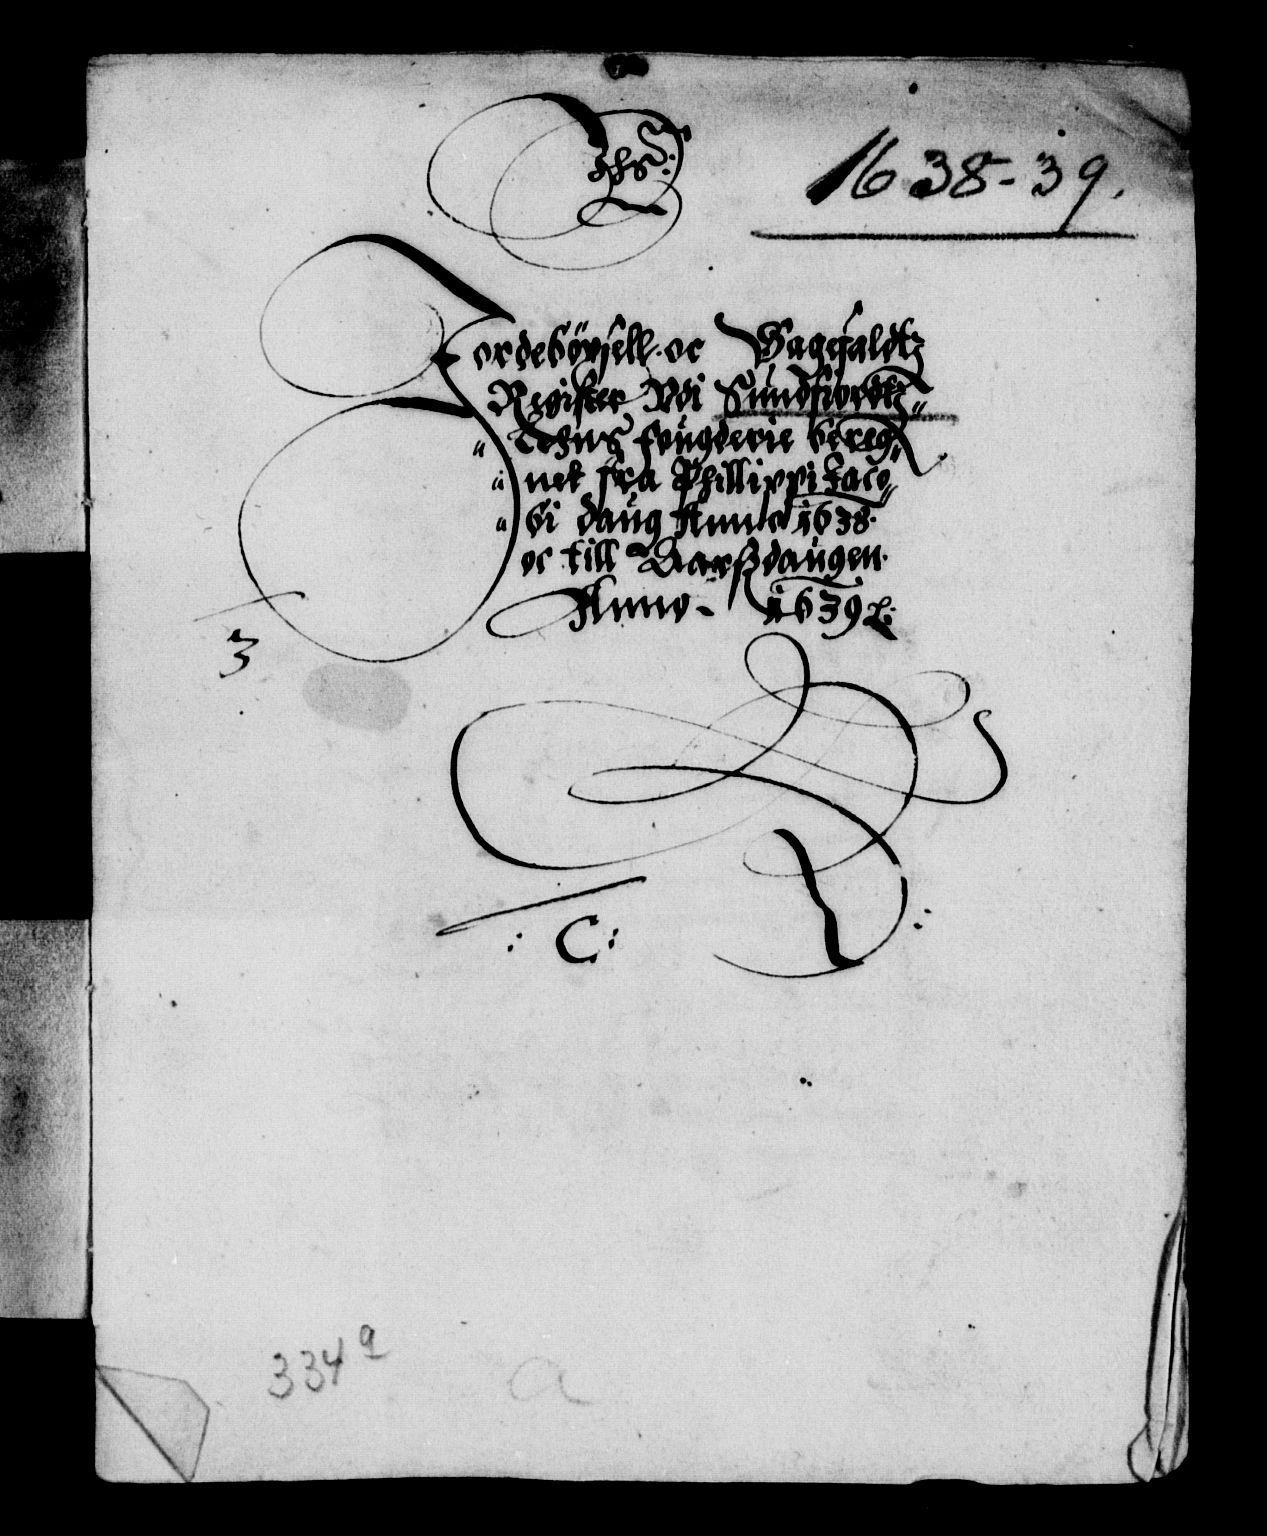 Jhs:
1638-39.
Jordebøgsell. oc Sagefaldtz
Register Vdi Sundfiordtz
Lehns fougderie bereg,,
,, net fra Phillippi Jaco,,
,, bi daug Anno 1638.
oc till Aarßdaugen.
Anno- 1639
3
: C :
334 a
a